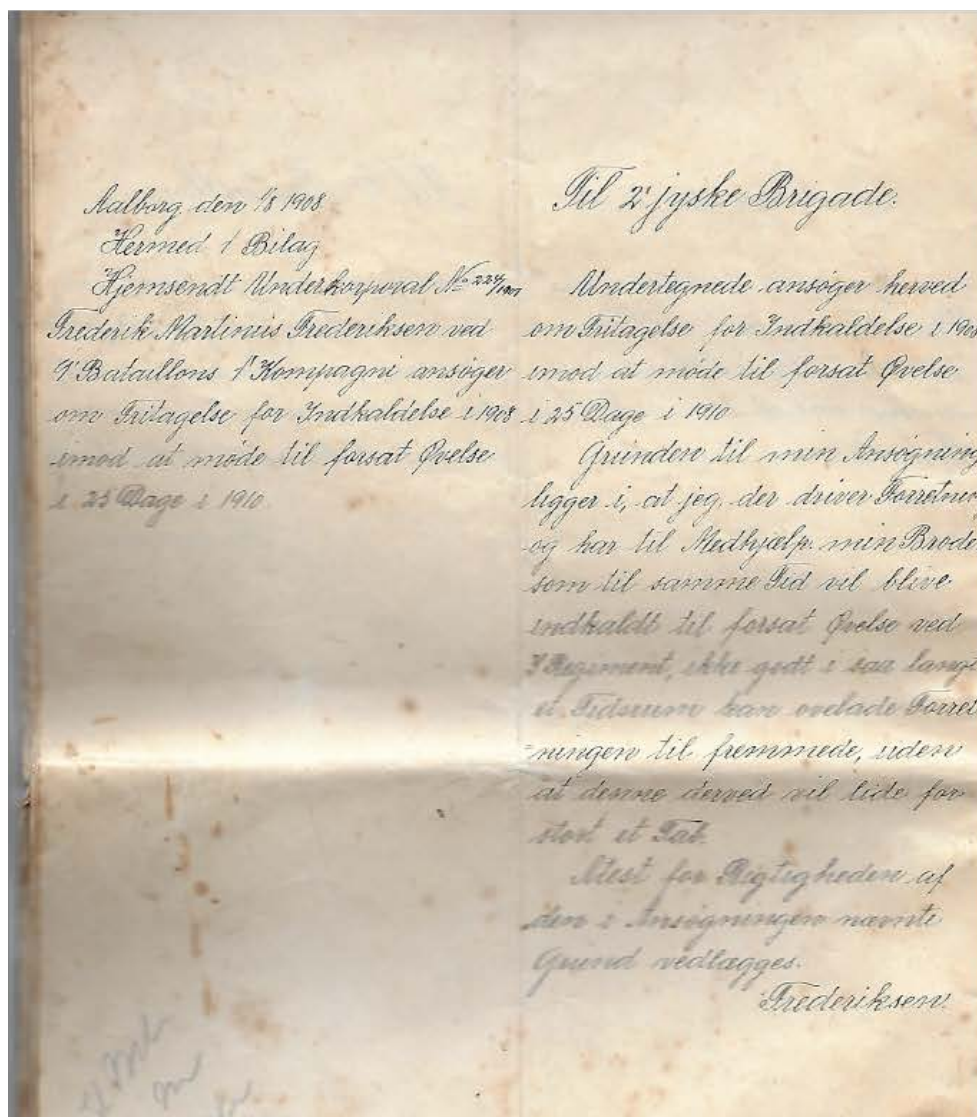 Aalborg, den 1/8 1908.
Hermed 1 Bilag
Hjemsendt Underkorporal No 224/1907
Frederik Martinus Frederiksen ved
9' Bataillons 1' Kompagni ansøger
om Fritagelse for Indkaldelse i 1908
imod at møde til forsat Øvelse
i 25 Dage i 1910.
Til 2' jyske Brigade.
Undertegnede ansøger herved
om Fritagelse for Indkaldelse i 190
imod at møde til forsat Øvelse
i 25 Dage i 1910.
Grunden til min Ansøgning
ligger i, at jeg, der driver Forretning
og har til Medhjælp min Brode
som til samme Tid vil blive
indkaldt til forsat Øvelse ved
Regiment, ikke godt i saa langt
et Tidsrum kan ovelade Forret
ningen til fremmede, uden
at denne derved vil lide for
stort et Tab.
Attest for Rigtigheden af
den i Ansøgningen nævnte
Grund vedlægges.
Frederiksen.